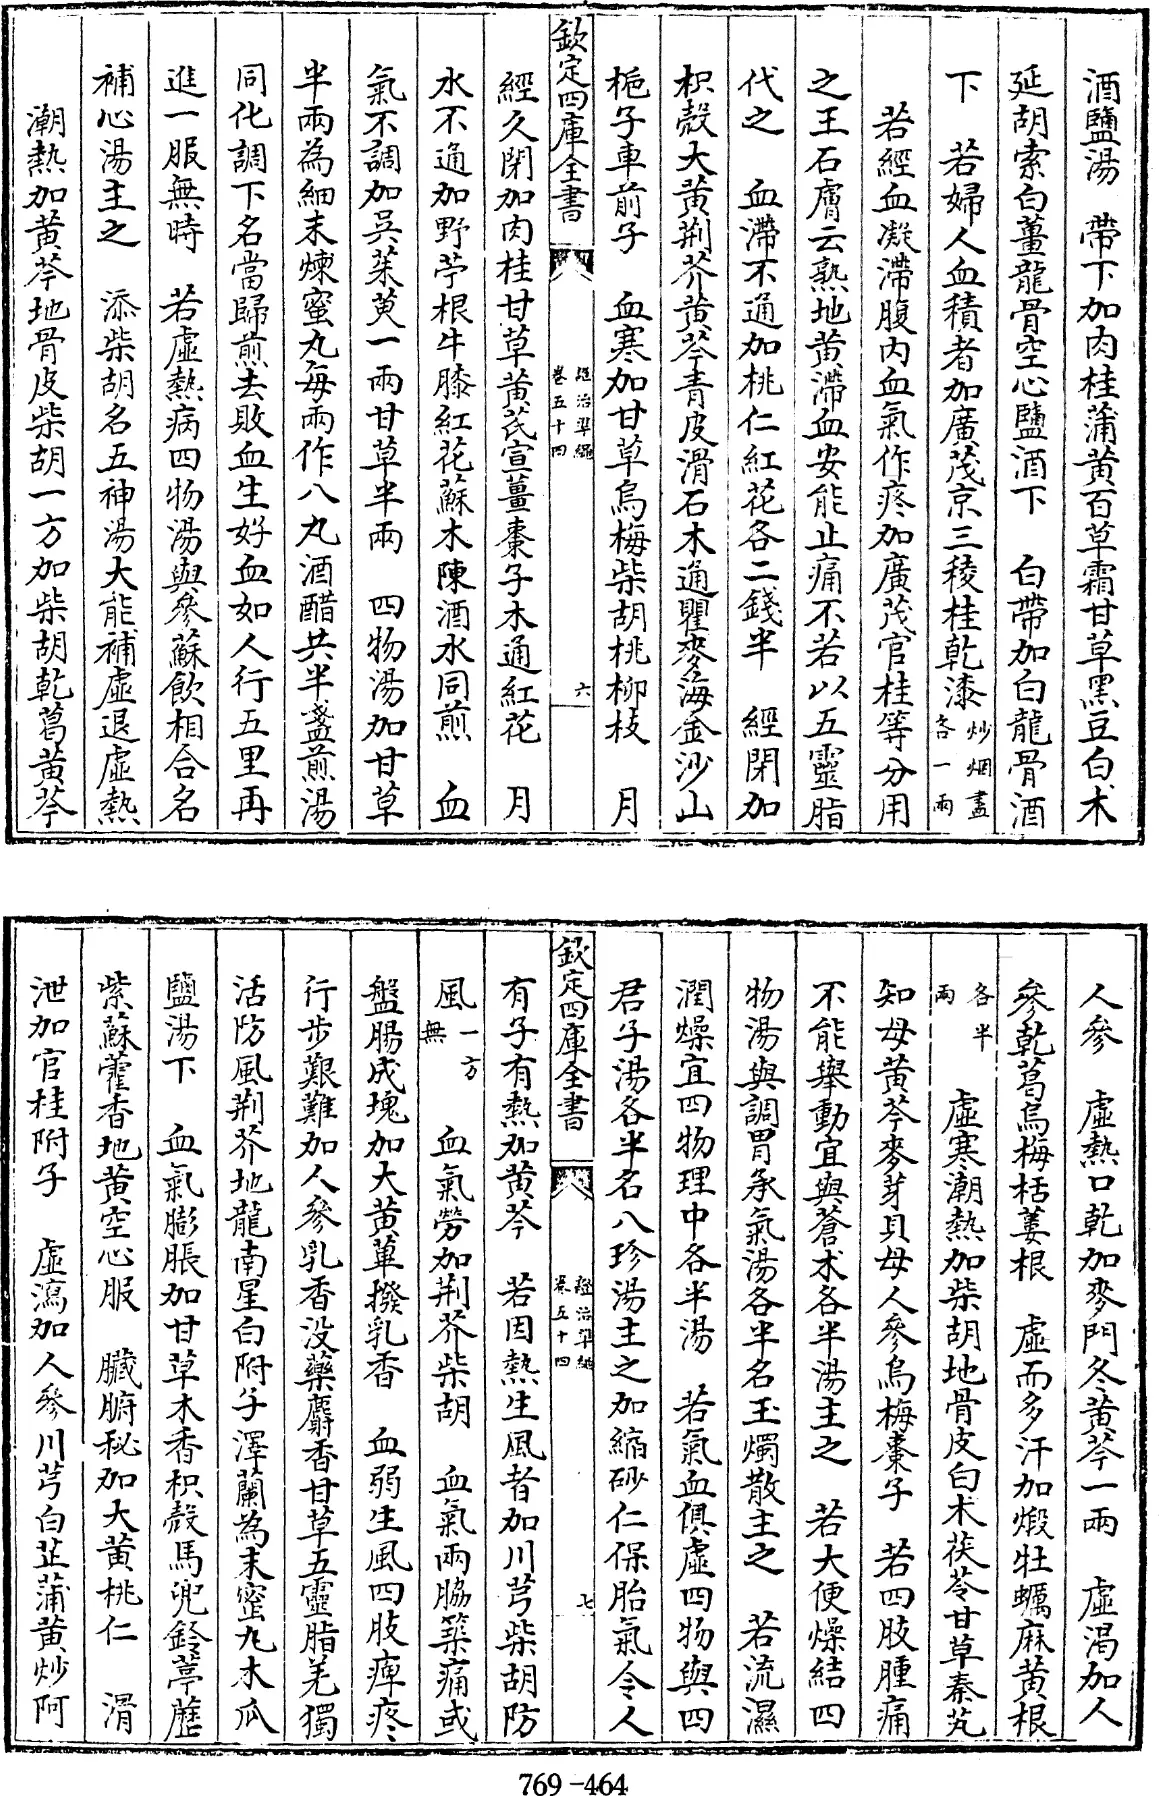 酒鹽湯　帶下加肉桂蒲黃百草霜甘草黑豆白术
延胡索白薑龍骨空心鹽酒下　白帶加白龍骨酒
下　若婦人血積者加廣茂京三稜桂乾漆炒烟盡各一兩
若經血凝滯腹內血氣作疼加廣茂官桂等分用
之王石膚云熟地黃滯血安能止痛不若以五靈脂
代之　血滯不通加桃仁紅花各二錢半　經閉加
枳殼大黃荆芥黃芩青皮滑石木通瞿麥海金沙山
梔子車前子　血寒加甘草烏梅柴胡桃柳枝　月
欽定四庫全書
證治準繩
卷五十四
六
經久閉加肉桂甘草黃茋宣薑棗子木通紅花　月
水不通加野苧根牛膝紅花蘇木陳酒水同煎　血
氣不調加吳茱萸一兩甘草半兩　四物湯加甘草
半兩為細末煉蜜丸每兩作八丸酒醋共半盞煎湯
同化調下名當歸煎去敗血生好血如人行五里再
進一服無時　若虛熱病四物湯與參蘇飲相合名
補心湯主之　添柴胡名五神湯大能補虛退虛熱
潮熱加黃芩地骨皮柴胡一方加柴胡乾葛黃芩
人參　虛熱口乾加麥門冬黃芩一兩　虛渴加人
參乾葛烏梅栝蔞根　虛而多汗加煅牡蠣麻黃根
各半兩　虛寒潮熱加柴胡地骨皮白术茯苓甘草秦艽
知母黃芩麥芽貝母人參烏梅棗子　若四肢腫痛
不能舉動宜與蒼术各半湯主之　若大便燥結四
物湯與調胃承氣湯各半名玉燭散主之　若流濕
潤燥宜四物理中各半湯　若氣血俱虛四物與四
君子湯各半名八珍湯主之加縮砂仁保胎氣令人
欽定四庫全書
證治準繩
卷五十四
七
有子有熱加黃芩　若因熱生風者加川芎柴胡防
風一方無　血氣勞加荆芥柴胡　血氣兩脇築痛或
盤腸成塊加大黃蓽撥乳香　血弱生風四肢痺疼
行步艱難加人參乳香没藥麝香甘草五靈脂羌獨
活防風荆芥地龍南星白附子澤蘭為末蜜丸木瓜
鹽湯下　血氣膨脹加甘草木香枳殼馬兜鈴葶藶
紫蘇藿香地黃空心服　臟腑秘加大黃桃仁　滑
泄加官桂附子　虛瀉加人參川芎白芷蒲黃炒阿
769-464